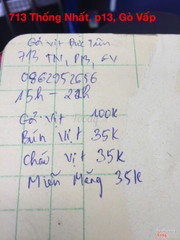 713 Thống Nhất, p13, Gò Vấp
Gỏi vịt Đức Tâm
713 TN, P13, GV
0862952636
15h - 21h
Gỏi vịt 100k
Bún Vịt 35K
Cháo Vịt 35K
Miến Măng 35K